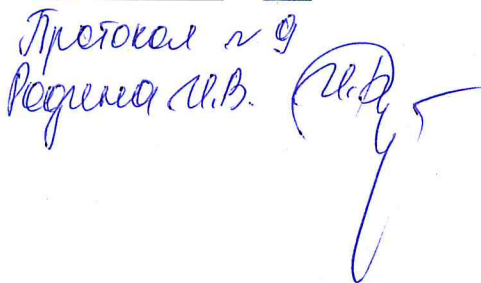 Протокол № 9
Родина И.В.